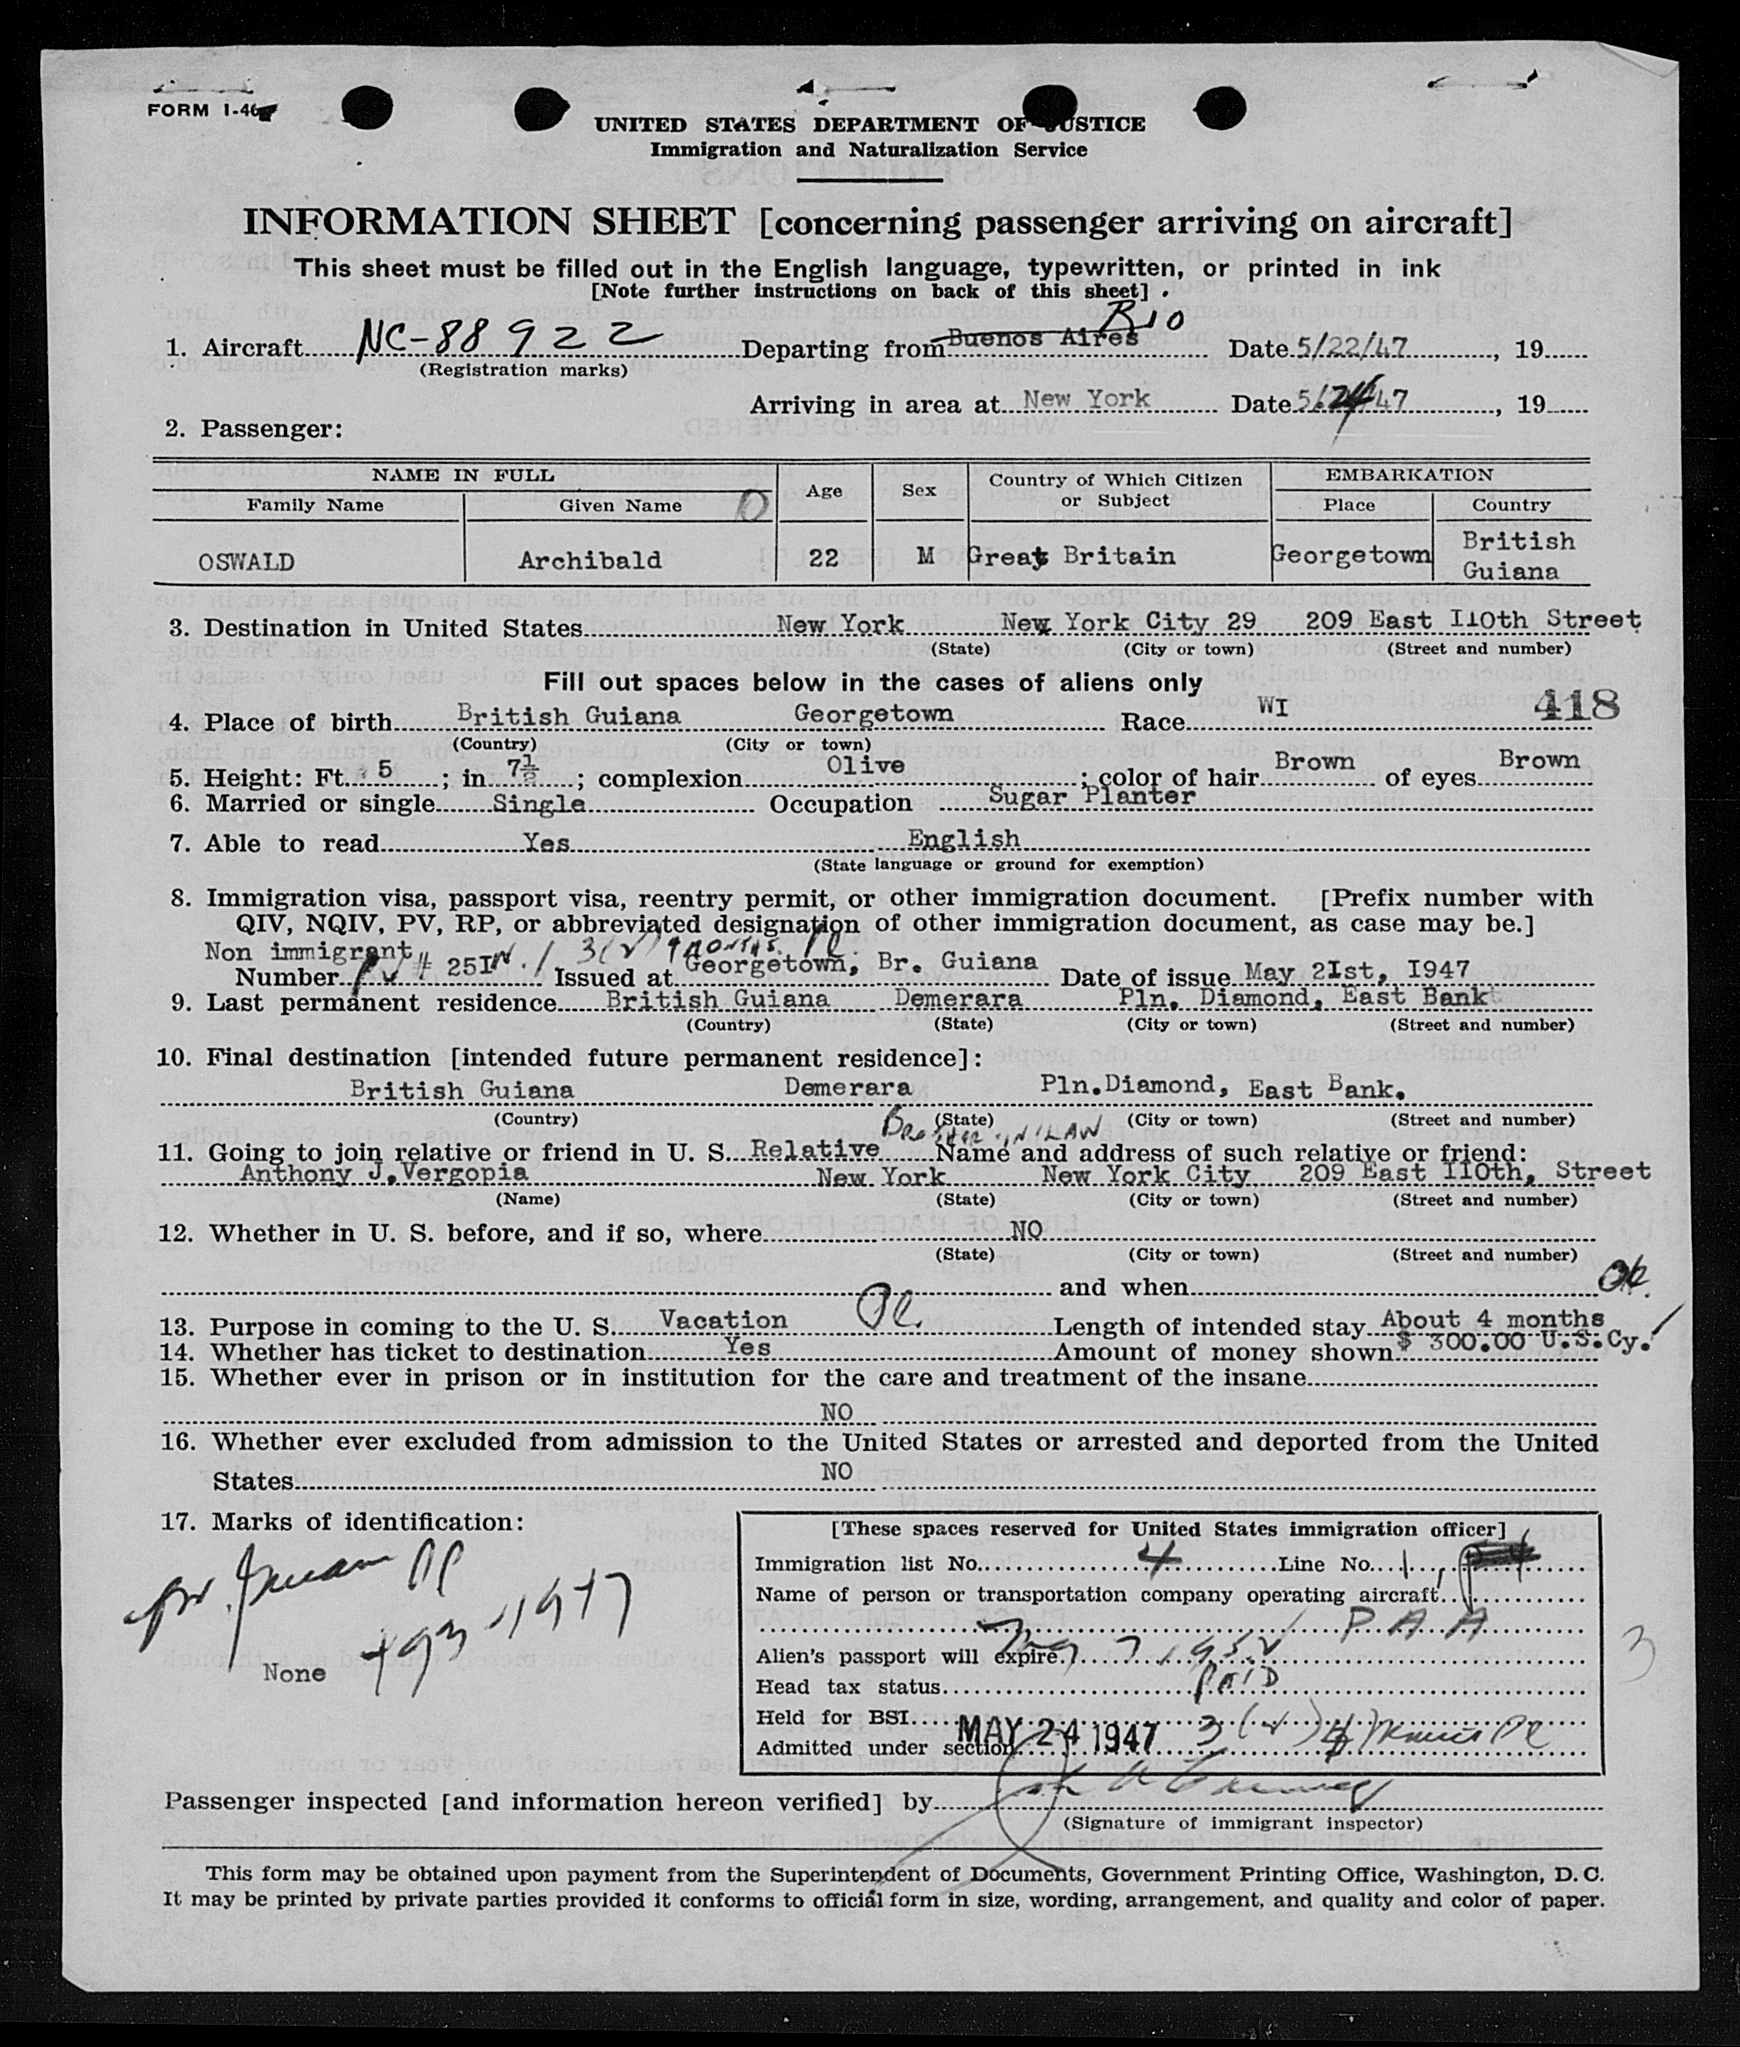 FORM I-46
UNITED STATES DEPARTMENT OF JUSTICE
Immigration and Naturalization Service
INFORMATION SHEET [concerning passenger arriving on aircraft]
This sheet must be filled out in the English language, typewritten, or printed in ink
[Note further instructions on back of this sheet].
Rio
1. Aircraft NC-88922 Departing from Buenos Aires Date 5/22/47, 19
(Registration marks)
Arriving in area at New York Date 5/24/47, 19
2. Passenger:
NAME IN FULL Age Sex Country of Which Citizen or Subject EMBARKATION
Family Name Given Name Place Country
OSWALD Archibald 22 M Great Britain Georgetown British Guiana
3. Destination in United States New York New York City 29 209 East 110th Street
(State) (City or town) (Street and number)
Fill out spaces below in the cases of aliens only
418
4. Place of birth British Guiana Georgetown Race WI
(Country) (City or town)
5. Height: Ft. 5; in 7½; complexion Olive; color of hair Brown of eyes Brown
6. Married or single Single Occupation Sugar Planter
7. Able to read Yes English
(State language or ground for exemption)
8. Immigration visa, passport visa, reentry permit, or other immigration document. [Prefix number with
QIV, NQIV, PV, RP, or abbreviated designation of other immigration document, as case may be.]
Non immigrant 3(2) 4 MONTHS.
Number PV # 25I Issued at Georgetown, Br. Guiana Date of issue May 2Ist, I947
9. Last permanent residence British Guiana Demerara Pln. Diamond, East Bank
(Country) (State) (City or town) (Street and number)
10. Final destination [intended future permanent residence]:
British Guiana Demerara Pln.Diamond, East Bank.
(Country) (State) (City or town) (Street and number)
BROTHER IN LAW
11. Going to join relative or friend in U. S. Relative Name and address of such relative or friend:
Anthony J.Vergopia New York New York City 209 East II0th, Street
(Name) (State) (City or town) (Street and number)
12. Whether in U. S. before, and if so, where NO
(State) (City or town) (Street and number)
and when Ok.
13. Purpose in coming to the U. S. Vacation Length of intended stay About 4 months
14. Whether has ticket to destination Yes Amount of money shown $ 300.00 U.S.Cy.
15. Whether ever in prison or in institution for the care and treatment of the insane
NO
16. Whether ever excluded from admission to the United States or arrested and deported from the United
States NO
17. Marks of identification:
None
[These spaces reserved for United States immigration officer]
Immigration list No. 4 Line No. 1
Name of person or transportation company operating aircraft
P. A. A
Alien's passport will expire 7, 1952
Head tax status PAID
Held for BSI
Admitted under section MAY 24 1947 3 (2) 4
3
Passenger inspected [and information hereon verified] by
(Signature of immigrant inspector)
This form may be obtained upon payment from the Superintendent of Documents, Government Printing Office, Washington, D. C.
It may be printed by private parties provided it conforms to official form in size, wording, arrangement, and quality and color of paper.